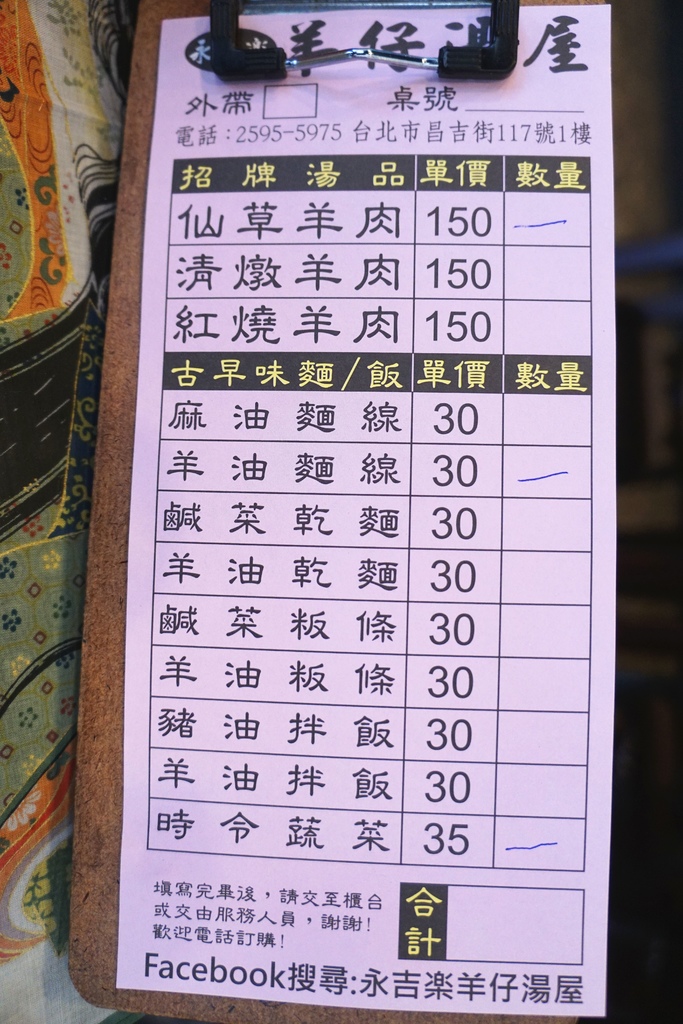 永 楽 羊仔湯屋
外帶 桌號
電話:2595-5975 台北市昌吉街117號1樓
招牌湯品 單價 數量
仙草羊肉 150 一
清燉羊肉 150
紅燒羊肉 150
古早味麵/飯 單價 數量
麻油麵線 30
羊油麵線 30 一
鹹菜乾麵 30
羊油乾麵 30
鹹菜粄條 30
羊油粄條 30
豬油拌飯 30
羊油拌飯 30
時令蔬菜 35 一
填寫完畢後,請交至櫃台
或交由服務人員,謝謝!
歡迎電話訂購!
合計
Facebook搜尋:永吉楽羊仔湯屋